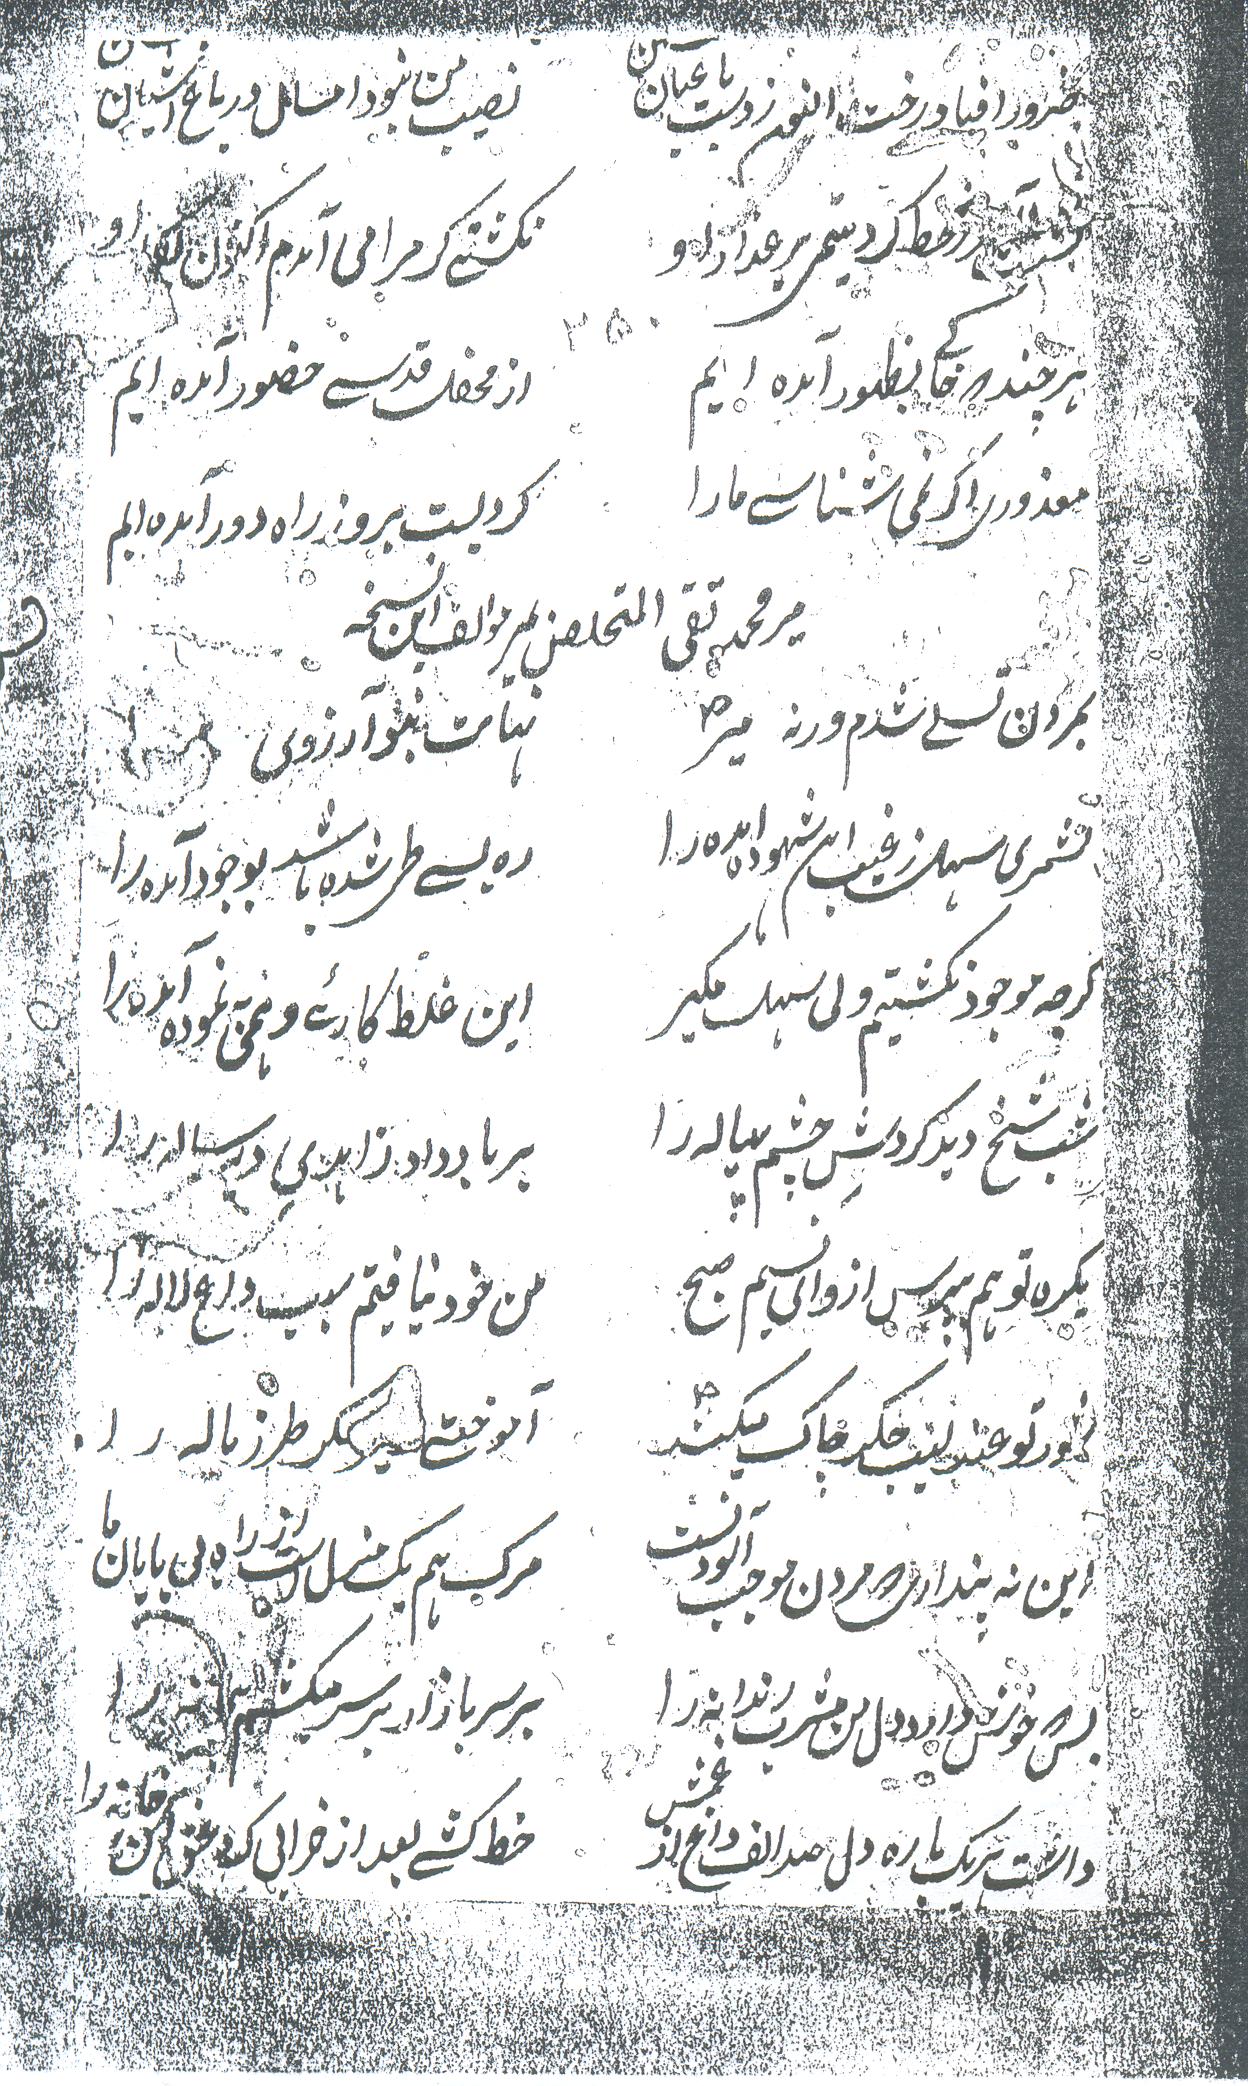 ضرور افتاد رخت از دست باغبان بستن نصیب من نبود امسال در باغ آشیان بستن
خط گرد یتیمی بر عذار او نگشتی گر مرا می آمدم اکنون بکار او
۲۵۰
هرچند که خاکی بظهور آمده ایم از محفل قدسی حضور آمده ایم
معذوری اگر نمی شناسی مارا گردیست برو ز راه دور آمده ایم
میر محمد تقی المتخلص بمیر مولف این نسخه
بمردن تسلی شدم ورنه میر نهایت نبود آرزوی مرا
نشمری سهل ز غیب این بشهود آمده را ره بسی طی شده باشد بوجود آمده را
گرچه موجود نگشتیم ولی سهل مگیر این غلط کاری وهمی بنمود آمده را
شب شیخ دید گردش چشم پیاله را بر باد داد زاهدی دیرساله را
یکره تو هم بپرس ازو ای نسیم صبح من خود نیافتم سبب داغ لاله را
شور تو عندلیب جگر چاک میکند آموختی ز میر مگر طرز ناله را
این نه پنداری که مردن موجب آسودنست مرگ هم یک منزل است از راه بی پایان ما
بس که خوش دارد دل من مشرب رندانه را بر سر بازار بر سر میکشم پیمانه را
داشت هر یک پاره دل صد الف داغ از غمش خط کشی بعد از خرابی کرد عشق این خانه را